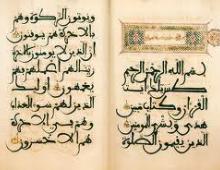 بسم الله الرحمن الرحيم
طس تلك ءايت
القرءان وكتاب مبين
هدى وبشرى للمومنين
الذين يقيمون الصلوة
ويوتون الزكوة وهم
بالاخرة هم يوقنون
ان الذين لا يومنون بالاخرة
زينا لهم اعملهم فهم
يعمهون اولئك
الذين لهم سوء العذاب
وهم في الاخرة
هم الاخسرون